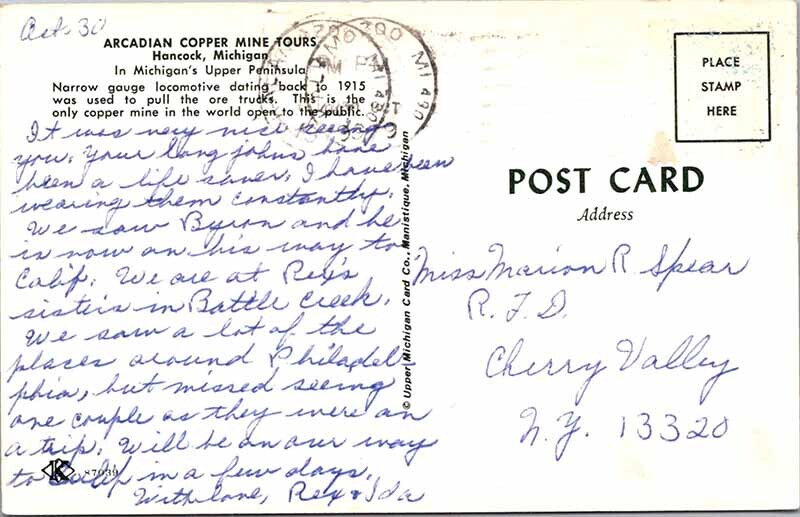 Oct. 30
ARCADIAN COPPER MINE TOURS
Hancock, Michigan
In Michigan's Upper Peninsula
Narrow gauge locomotive dating back to 1915
was used to pull the ore trucks. This is the
only copper mine in the world open to the public.
It was very nice seeing
you. Your long johns have
been a life saver. I have been
wearing them constantly.
We saw Byron and he
is now on his way to
Calif. We are at Rex's
sisters in Battle Creek.
We saw a lot of the
places around Philadel
phia, but missed seeing
one couple as they were on
a trip. Will be on our way
to Calif in a few days.
With love, Rex & Ida
K 87039
© Upper Michigan Card Co., Manistique, Michigan
MI 490
PM
MI 490
PLACE
STAMP
HERE
POST CARD
Address
Miss Marion R Spear
R.F.D.
Cherry Valley
N.Y. 13320